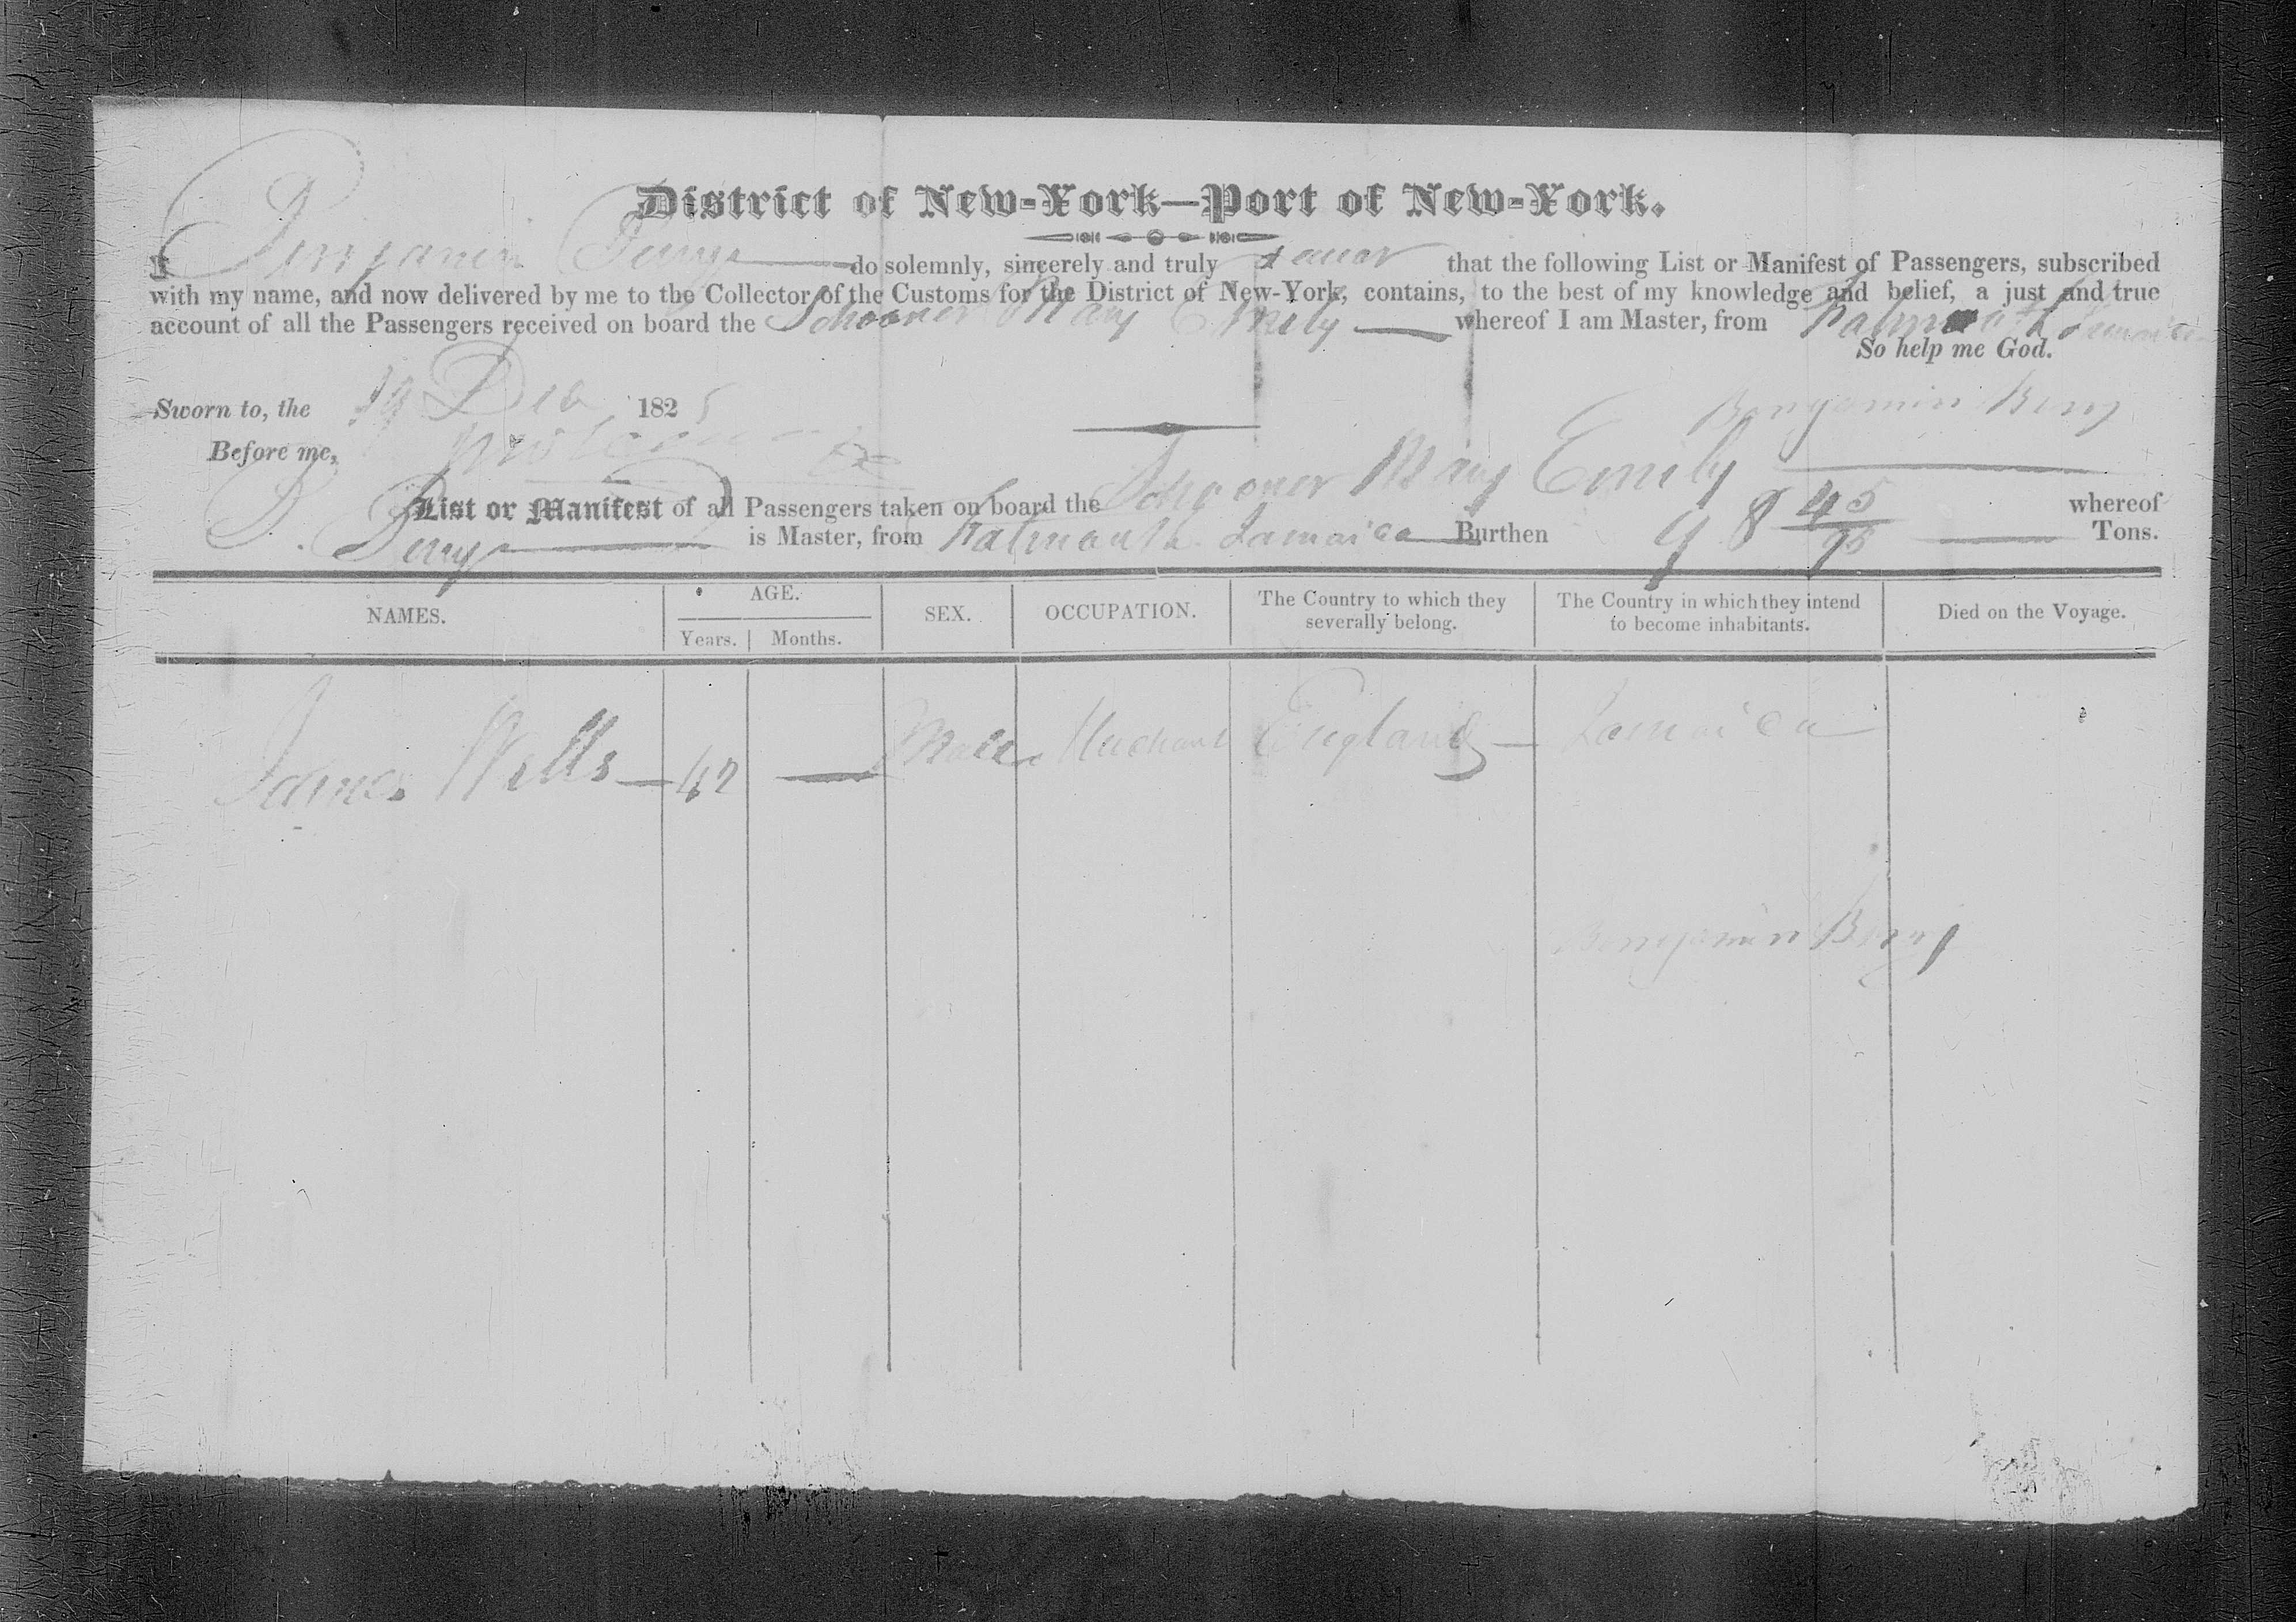 District of New-York—Port of New-York.
I Benjamin Berry do solemnly, sincerely and truly swear that the following List or Manifest of Passengers, subscribed
with my name, and now delivered by me to the Collector of the Customs for the District of New-York, contains, to the best of my knowledge and belief, a just and true
account of all the Passengers received on board the Schooner Mary Emily whereof I am Master, from Falmouth Jamaica
So help me God.
Sworn to, the 19 Dec 1825
Benjamin Berry
Before me,
List or Manifest of all Passengers taken on board the Schooner Mary Emily whereof
B. Berry is Master, from Falmouth Jamaica Burthen 98 45/95 Tons.
NAMES. AGE. SEX. OCCUPATION. The Country to which they severally belong. The Country in which they intend to become inhabitants. Died on the Voyage.
Years. Months.
James Wells — 42 — Male Merchant England — Jamaica
Benjamin Berry